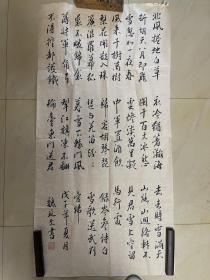 北風捲地白草
折胡天八月即飛
雪忽如一夜春
風來千樹萬樹
梨花開散入珠
簾濕羅幕狐
裘不暖錦衾
薄將軍角弓
不得控都護鐵
衣冷難著瀚海
闌干百丈冰愁
雲慘淡萬里凝
中軍置酒飲
歸客胡琴琵
琶與羌笛紛紛
暮雪下轅門風
掣紅旗凍不翻
輪臺東門送君
去去時雪滿天
山路山迴路轉不
見君雪上空留
馬行處
岑參詩白
雪歌送武判
官歸
戊子年夏月
書